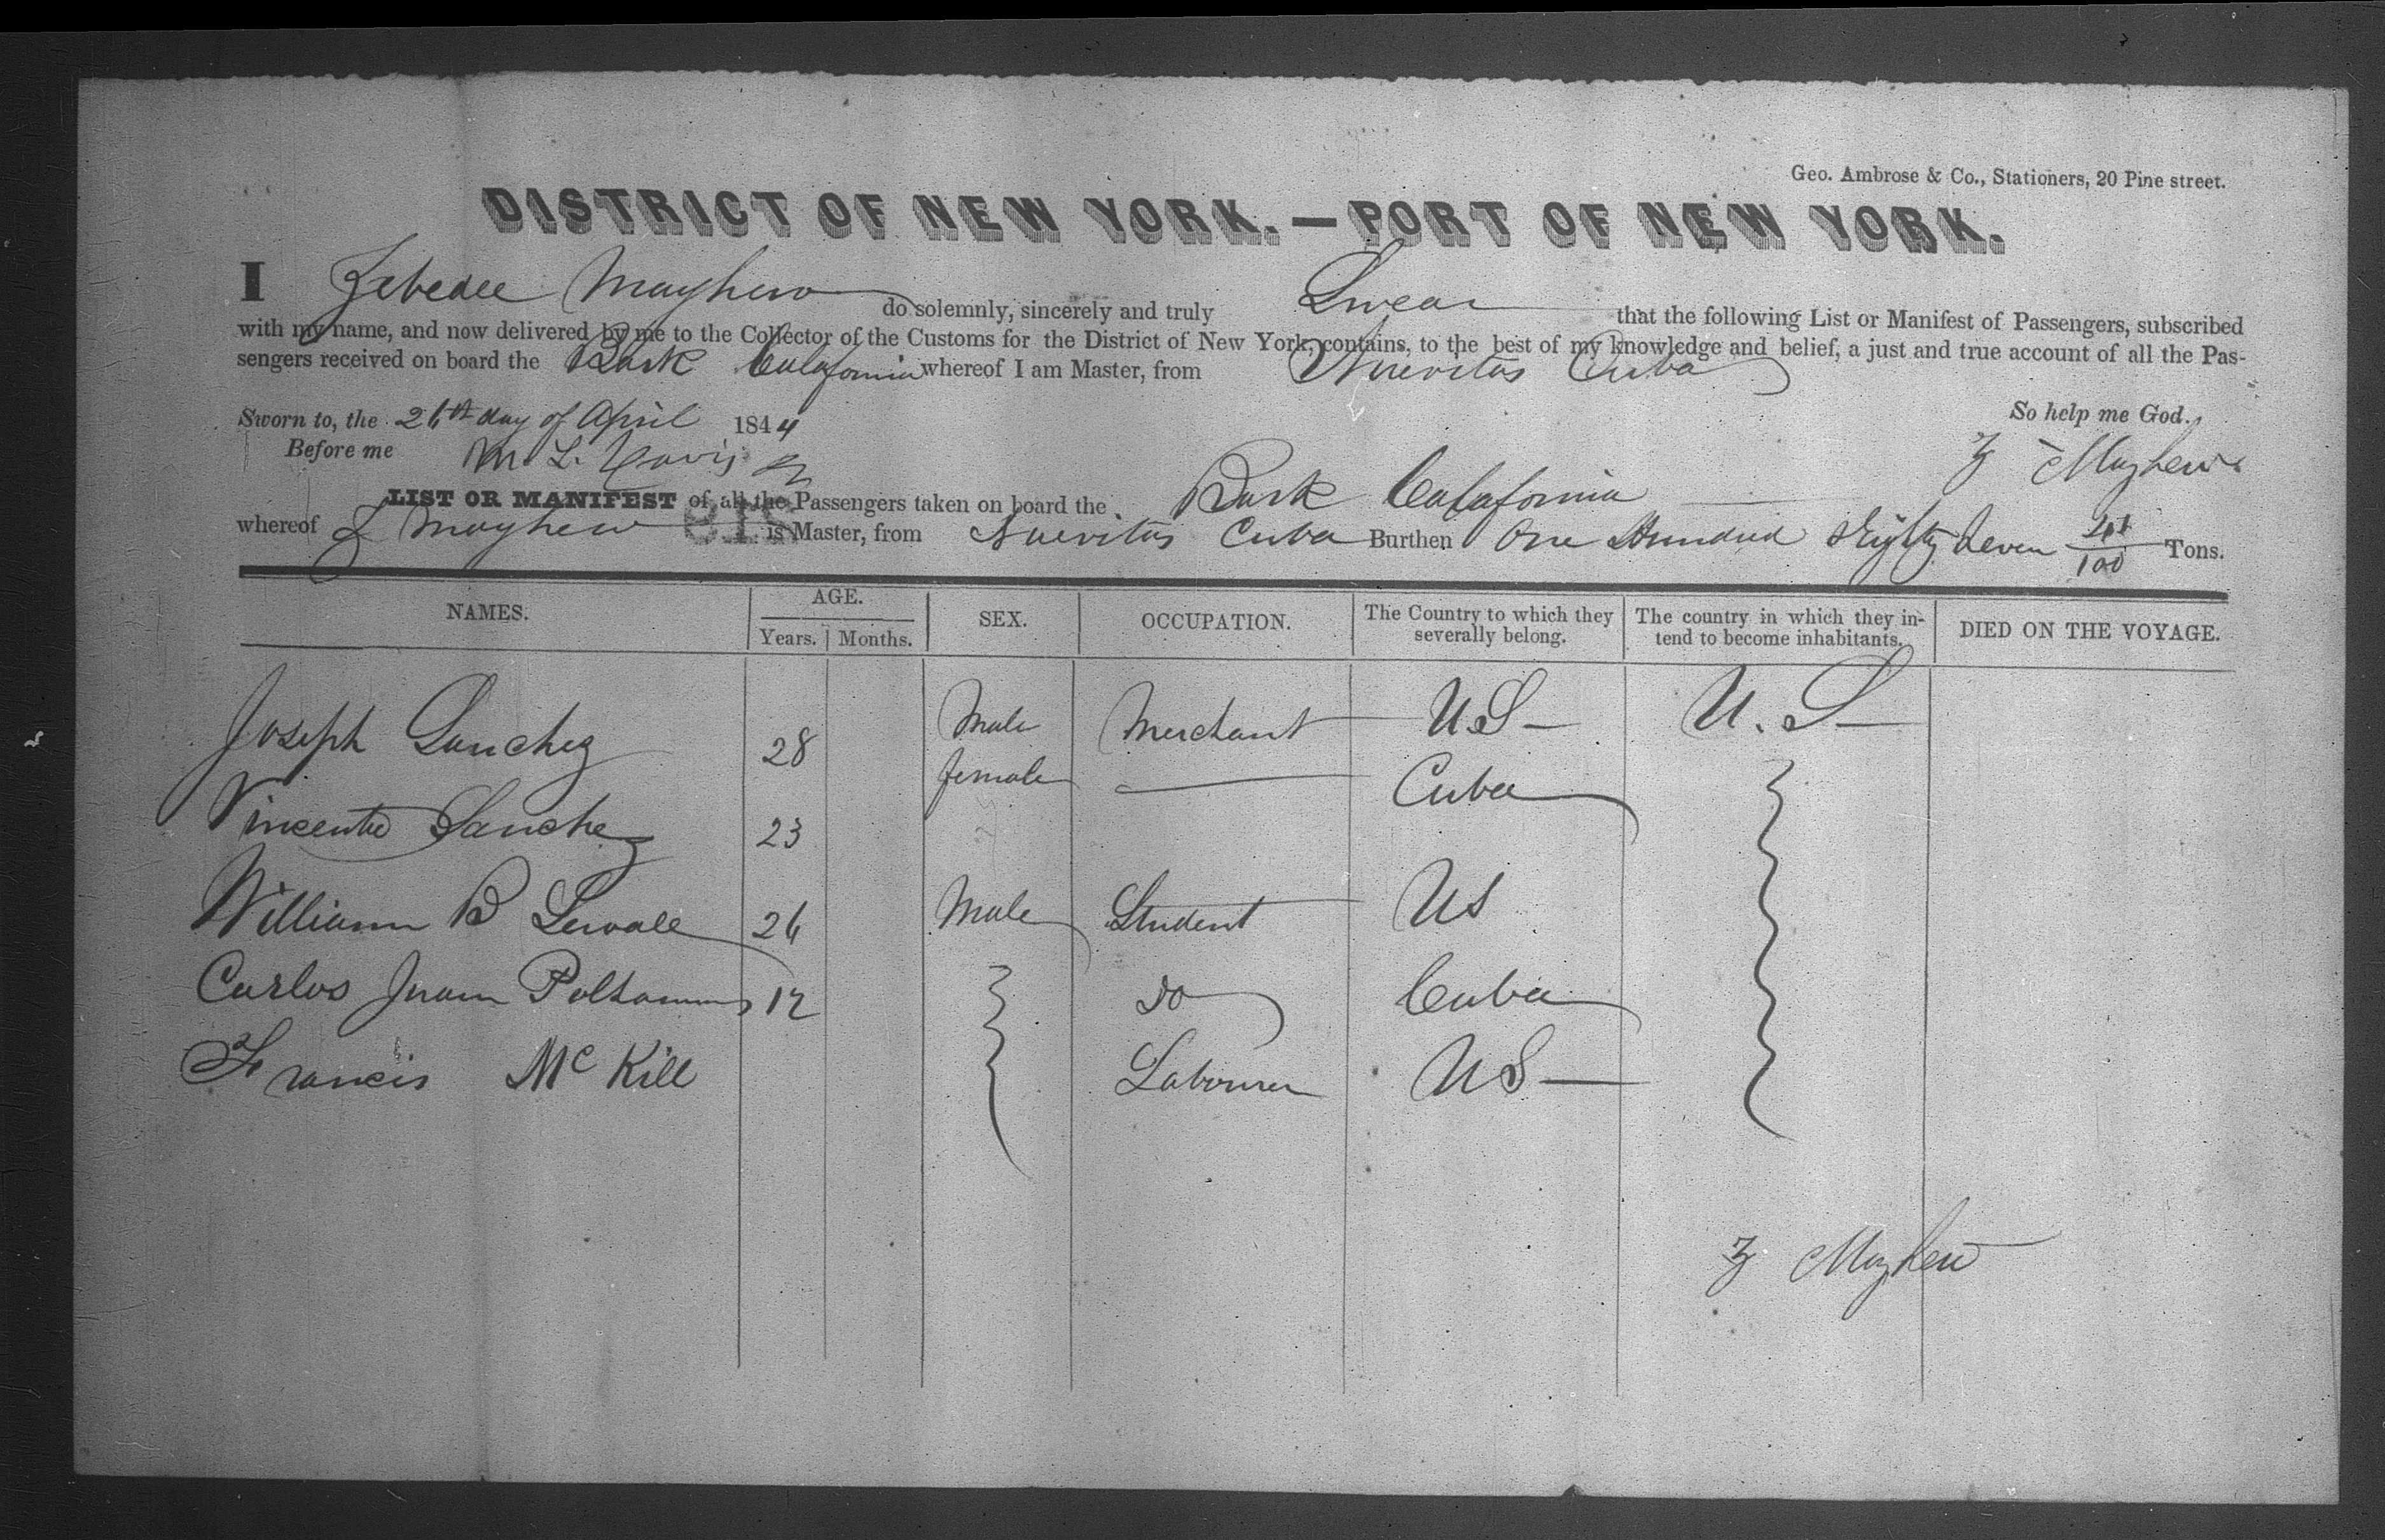 Geo. Ambrose & Co., Stationers, 20 Pine street.
DISTRICT OF NEW YORK.—PORT OF NEW YORK.
I Zebedee Mayhew do solemnly, sincerely and truly Swear that the following List or Manifest of Passengers, subscribed
with my name, and now delivered by me to the Collector of the Customs for the District of New York, contains, to the best of my knowledge and belief, a just and true account of all the Pas-
sengers received on board the Bark California whereof I am Master, from Nuevitas Cuba
Sworn to, the 26th day of April 1844
So help me God.
Before me M. L. Davis
Z Mayhew
LIST OR MANIFEST of all the Passengers taken on board the Bark California
whereof Z Mayhew is Master, from Nuevitas Cuba Burthen One Hundred Eighty Seven /100 Tons.
NAMES. AGE. SEX. OCCUPATION. The Country to which they severally belong. The country in which they in-tend to become inhabitants. DIED ON THE VOYAGE.
Years. Months.
Joseph Sanchez 28 Male Merchant US U.S
Vincente Sanchez 23 female Cuba
William B 26 Male Student US
Carlos Juan 12 Do Cuba
Francis Mc Kill Labourer US
Z Mayhew